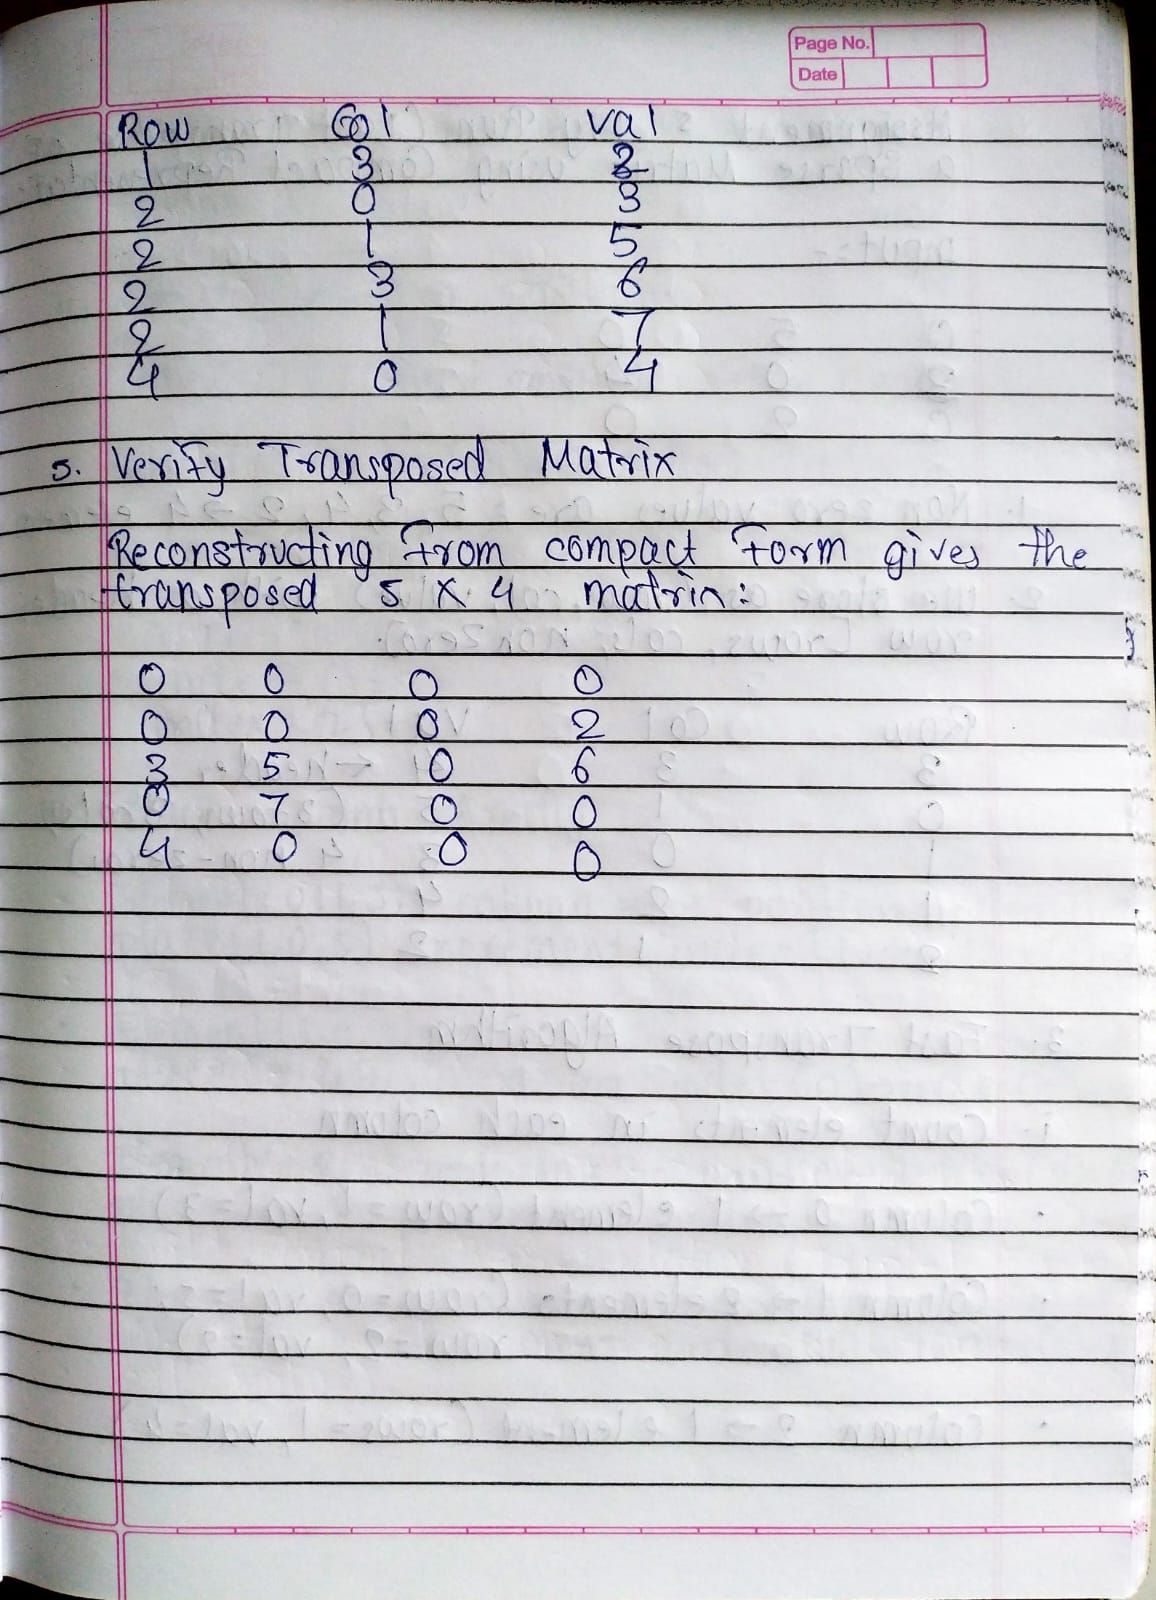 Page No.
Date
Row Col Val
1 3 2
2 0 3
2 1 5
2 3 6
2 1 7
4 0 4
5. Verify Transposed Matrix
Reconstructing from compact Form gives the
transposed 5 X 4 matrix:
0 0 0 0
0 0 0 2
3 5 0 6
0 7 0 0
4 0 0 0